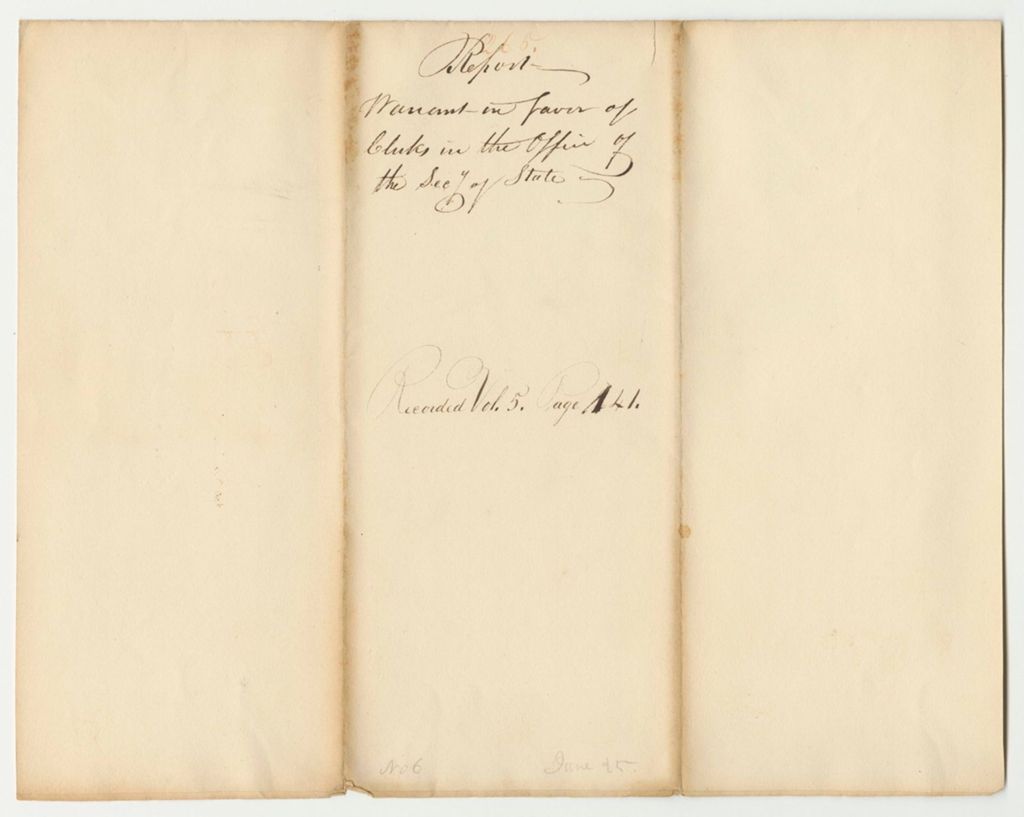 265.
Report
Warrant in favor of
Clerks in the Office of
the Secy of State
Recorded Vol. 5. Page 141.
No 6
June 25.